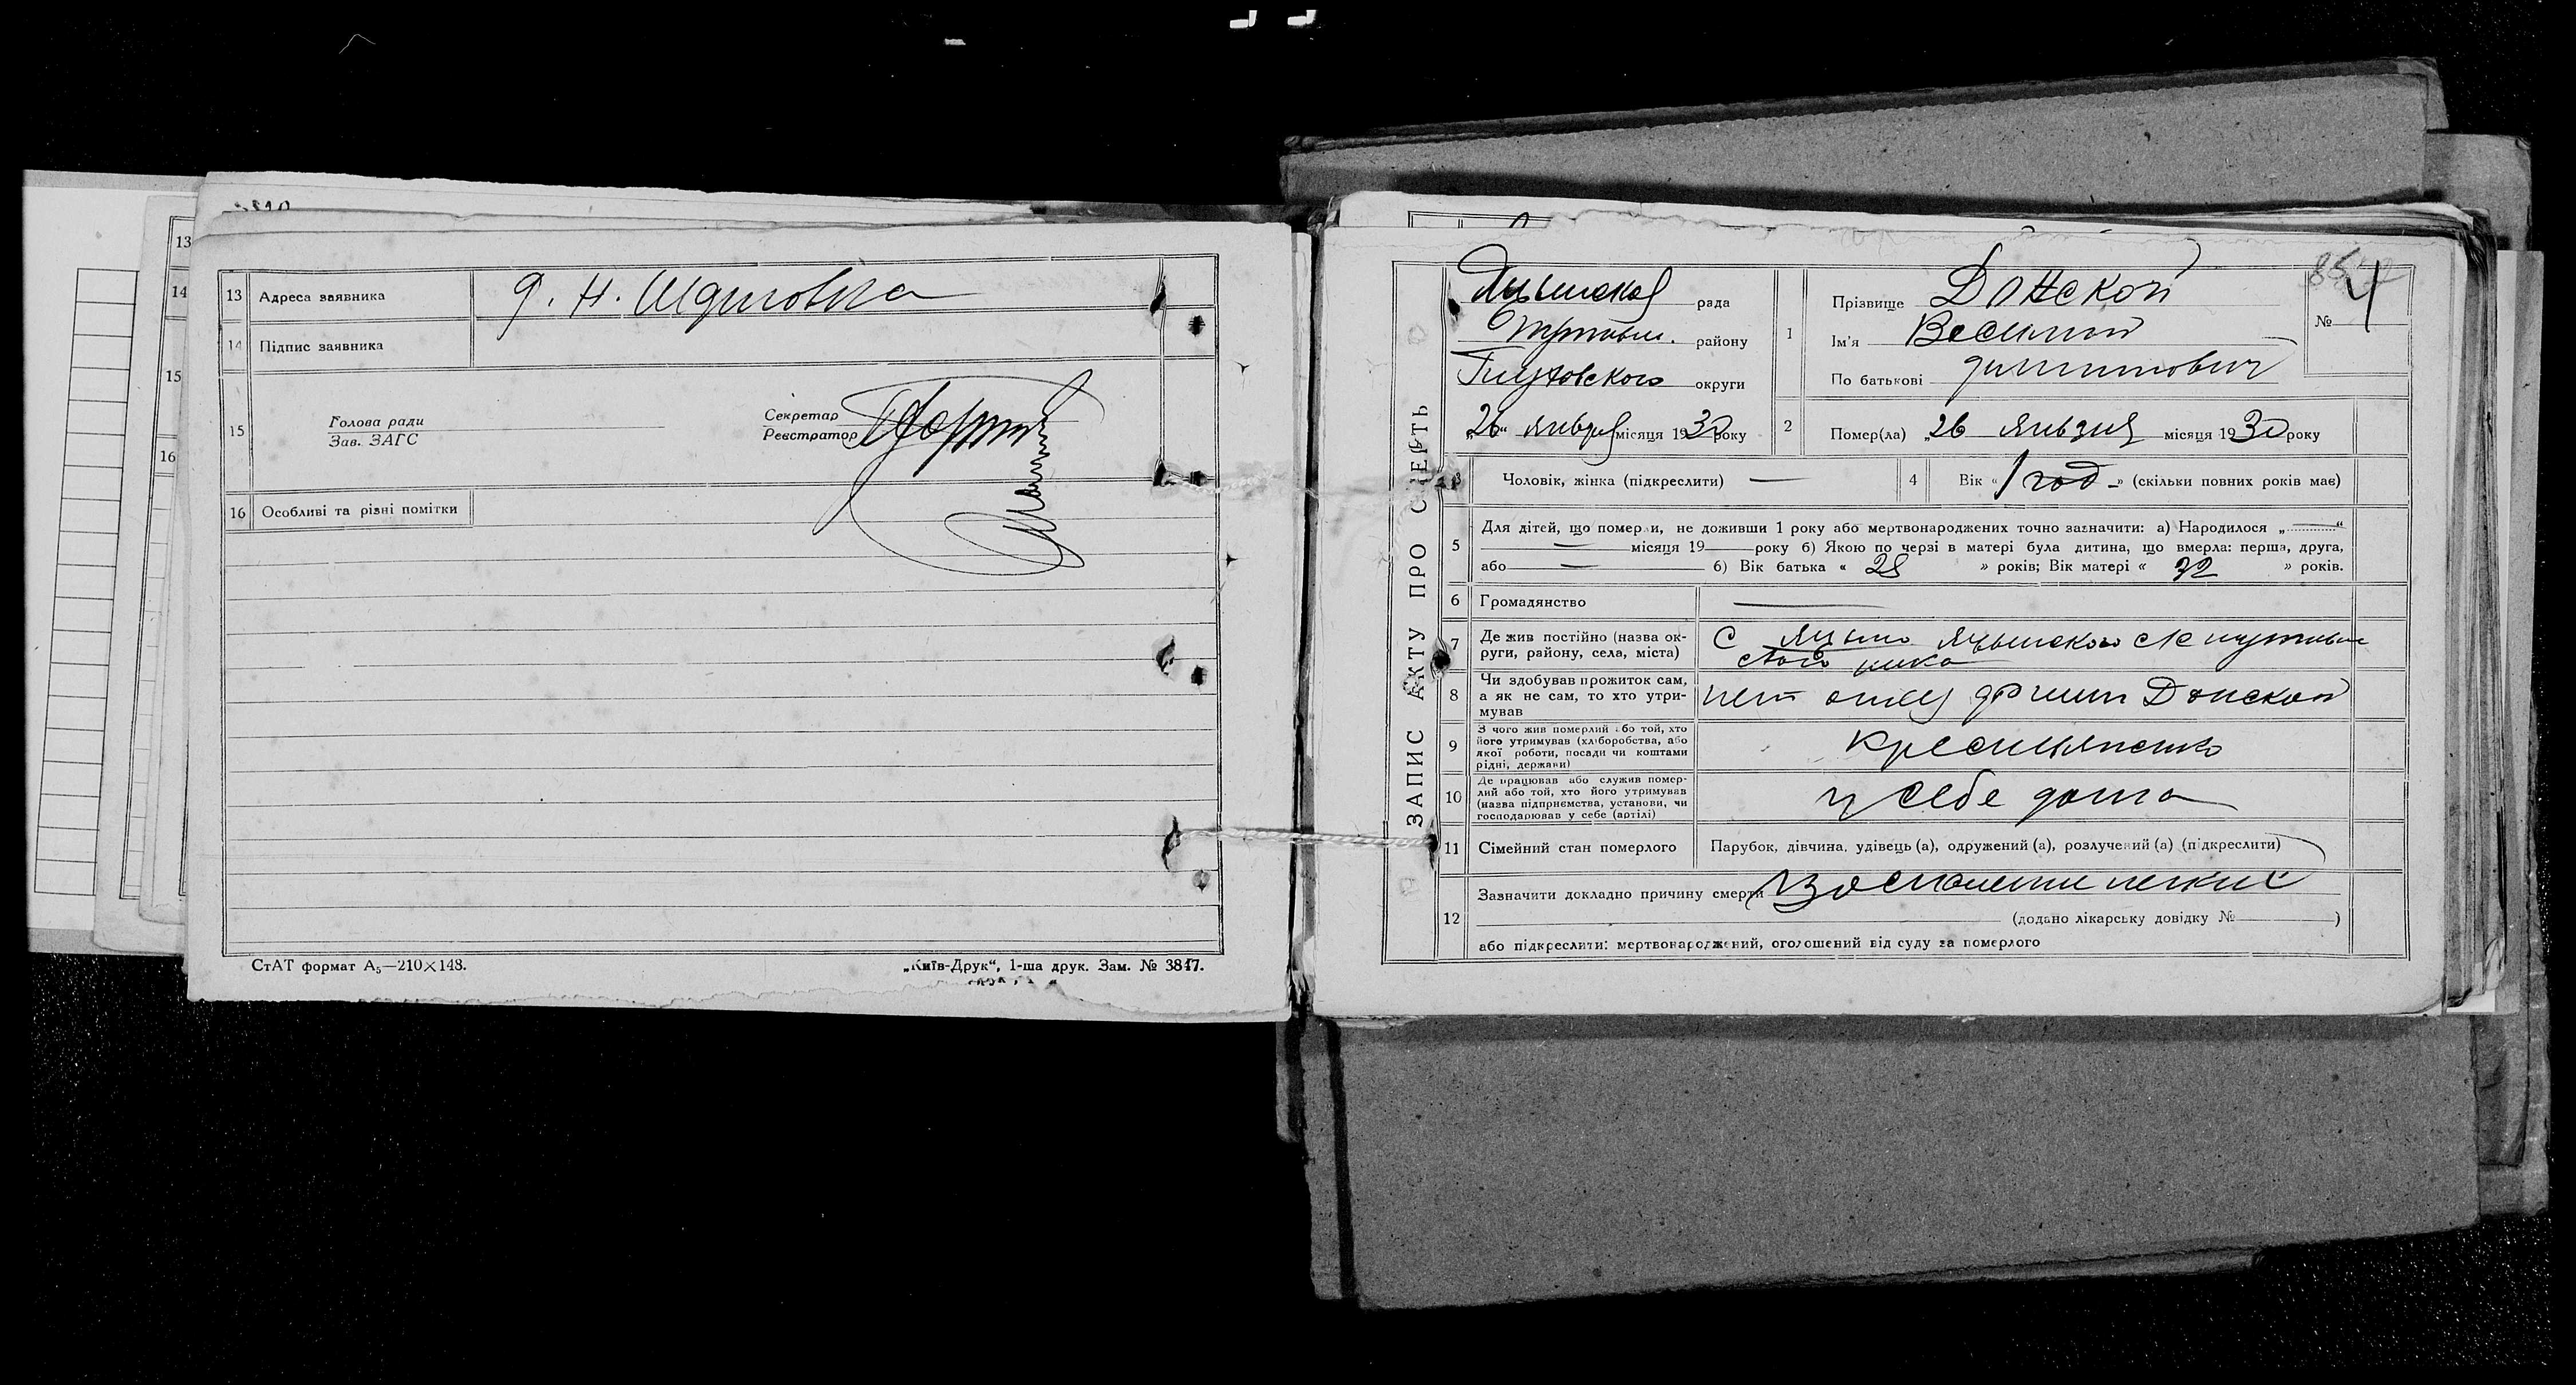 13
14
15
16
13 Адреса заявника
14 Підпис заявника
15 Голова ради
Зав. ЗАГС
Секретар
Реєстратор
16 Особливі та різні помітки
СтАТ формат А₅—210×148.
„Київ-Друк“, 1-ша друк. Зам. № 3847.
ЗАПИС АКТУ ПРО СМЕРТЬ
рада
району
округи
„26“ января місяця 1930 року
№ 4
1 Прізвище Донской
Ім'я Василий
По батькові
2 Помер(ла) „26 января місяця 1930 року
3 Чоловік, жінка (підкреслити) —
4 Вік «1 год» (скільки повних років має)
5 Для дітей, що померли, не доживши 1 року або мертвонароджених точно зазначити: а) Народилося „—“
— місяця 19— року б) Якою по черзі в матері була дитина, що вмерла: перша, друга,
або — б) Вік батька « » років; Вік матері « 32 » років.
6 Громадянство —
7 Де жив постійно (назва ок-
руги, району, села, міста)
8 Чи здобував прожиток сам,
а як не сам, то хто утри-
мував
нет отец Донской
9 З чого жив померлий або той, хто
його утримував (хліборобства, або
якої роботи, посади чи коштами
рідні, держави)
10 Де працював або служив помер-
лий або той, хто його утримував
(назва підприємства, установи, чи
господарював у себе (артілі)
у себе дома
11 Сімейний стан померлого
Парубок, дівчина, удівець (а), одружений (а), розлучений (а) (підкреслити)
12 Зазначити докладно причину смерти Воспаление легких
(додано лікарську довідку №— )
або підкреслити: мертвонароджений, оголошений від суду за померлого